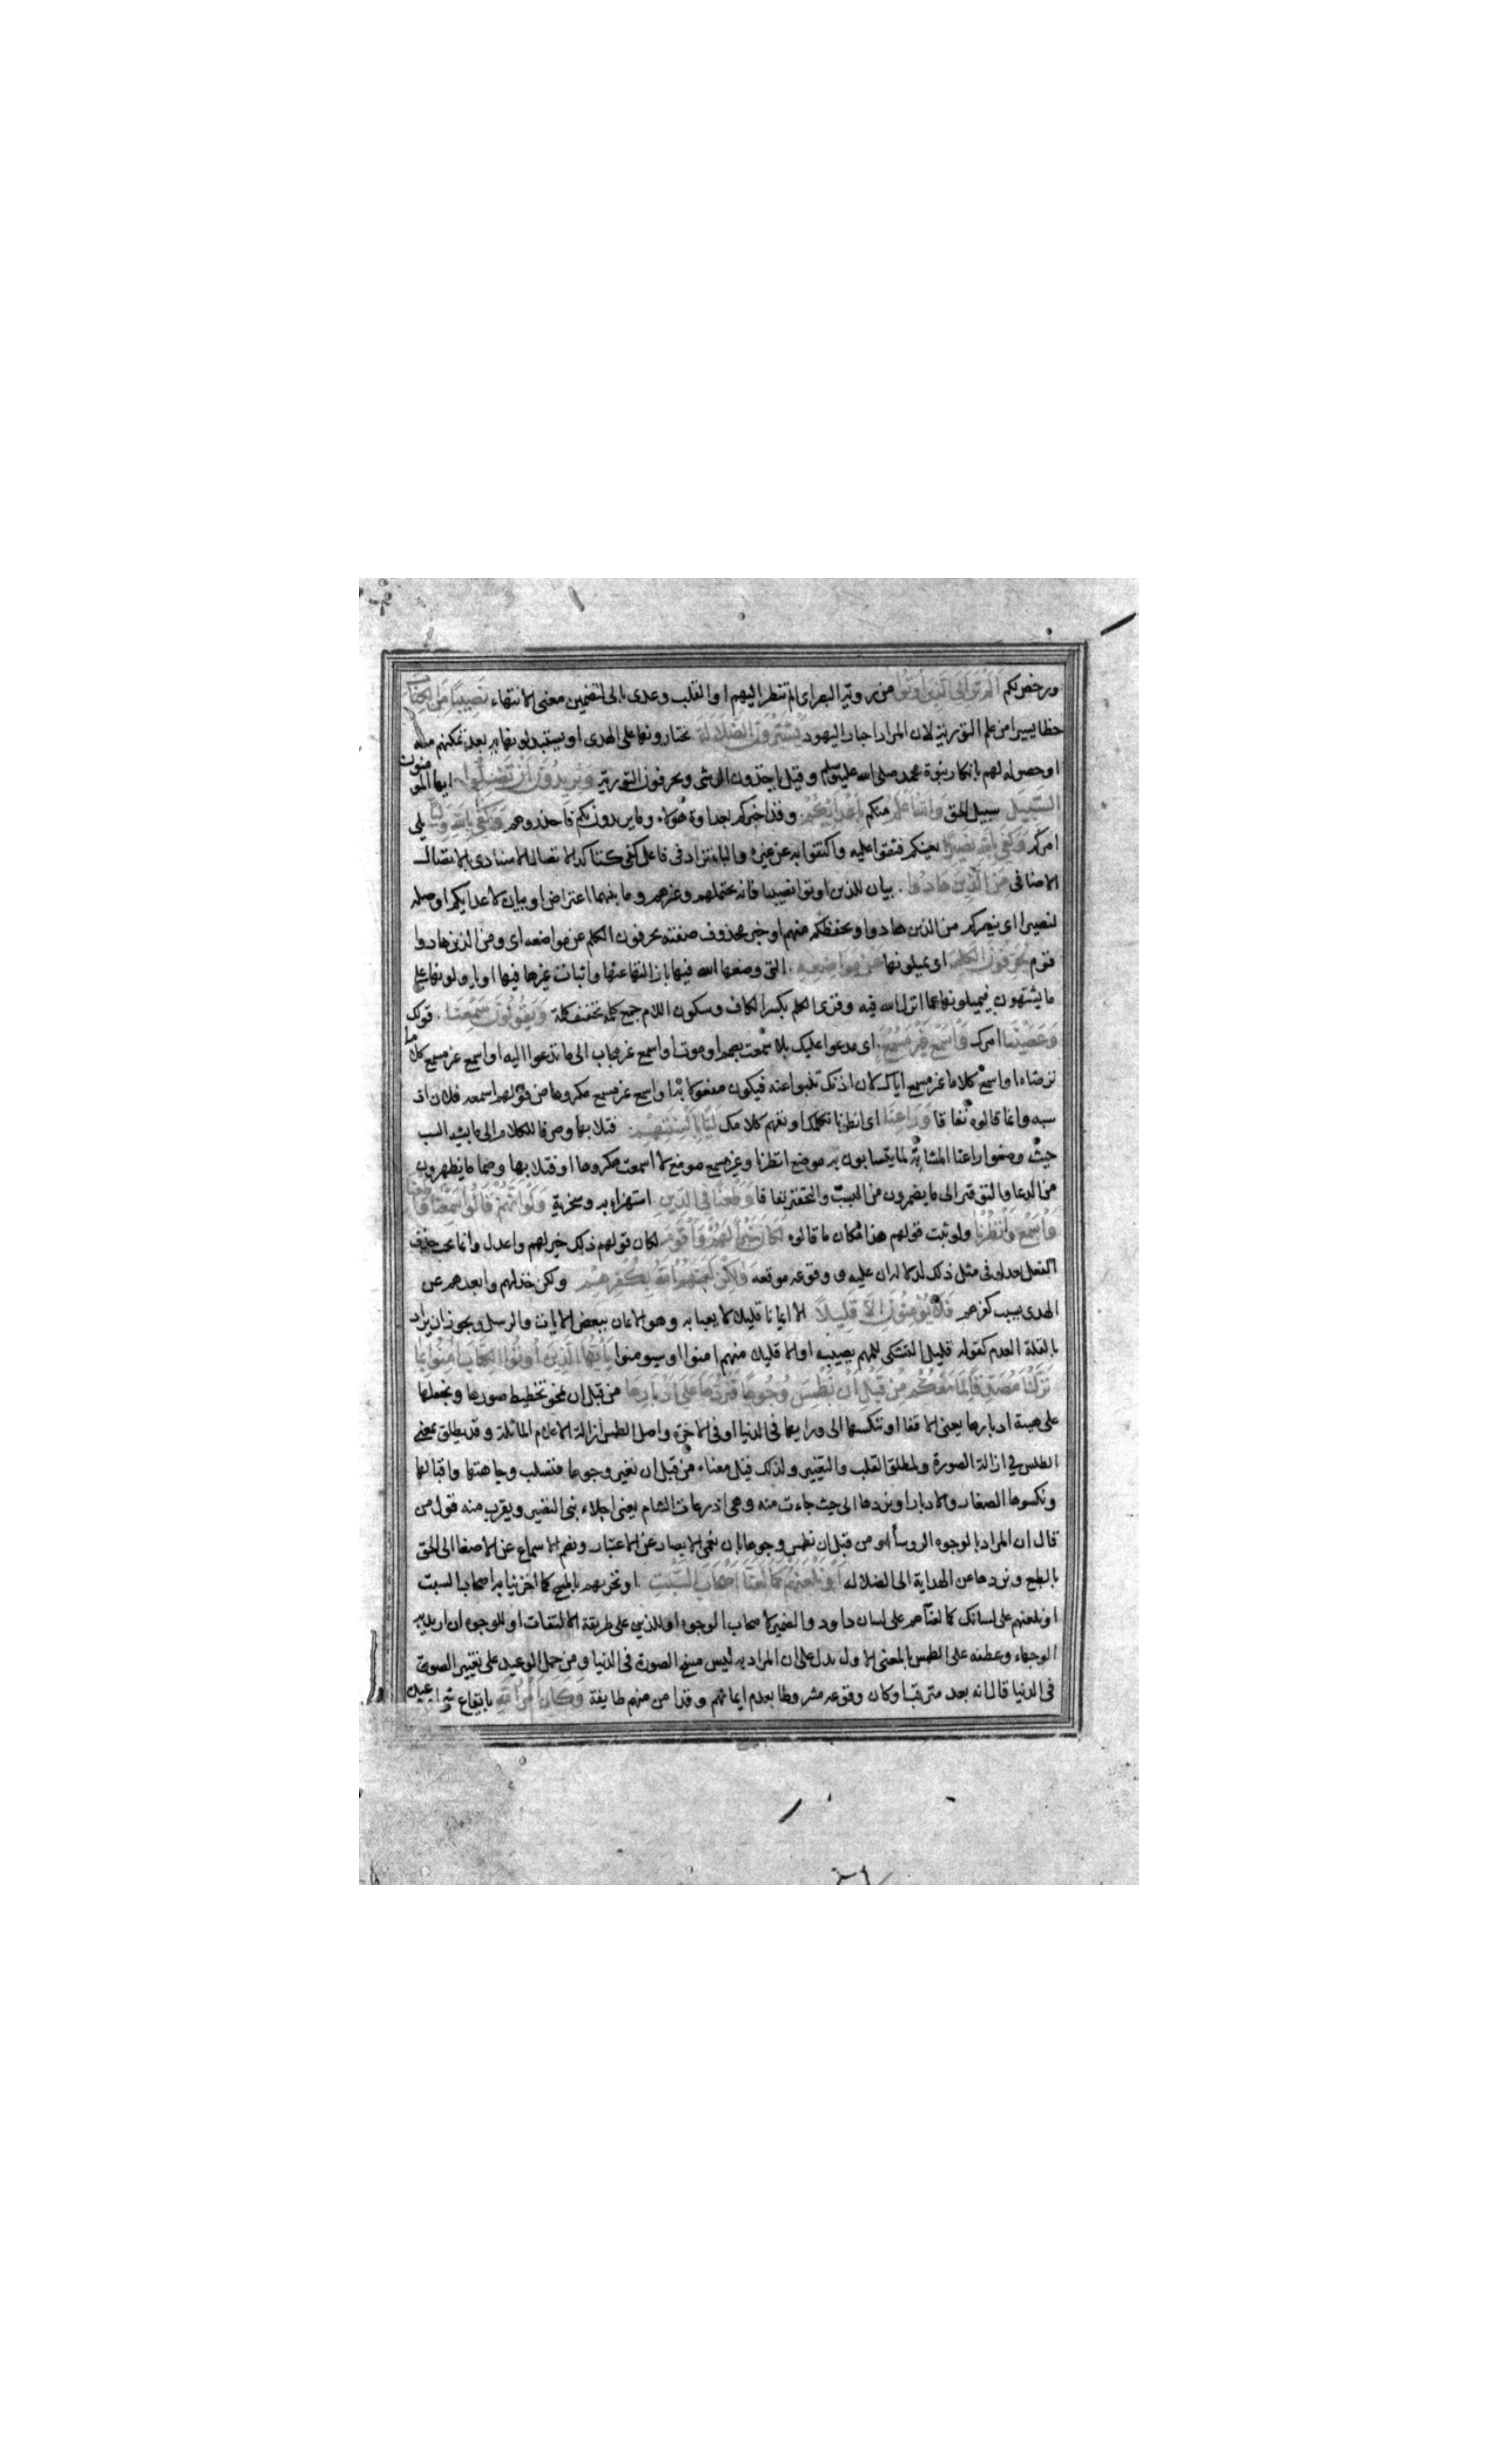 ورخص لكم الم تر الى الذين اوتوا من روية البصر اى الم تنظر اليهم او القلب وعدى بالى لتضمين معنى الانتهاء نصيبا من الكتاب
حظا يسيرا من علم التورية لان المراد احبار اليهود يشترون الضلالة يختارونها على الهدى او يستبدلونها به بعد تمكنهم منه
او حصوله لهم بانكار نبوة محمد صلى الله عليه وسلم وقيل ياخذون الرشى ويحرفون التورية ويريدون ان تضلوا ايها المومنون
السبيل سبيل الحق والله اعلم منكم باعدائكم وقد اخبركم بعداوة هولاء وما يريدون بكم فاحذروهم وكفى بالله وليا يلى
امركم وكفى بالله نصيرا يعينكم فثقوا عليه واكتفوا به عن غيره والباء تزاد فى فاعل كفى لتاكد الاتصال الاسنادى بالاتصال
الاضافى من الذين هادوا بيان للذين اوتوا نصيبا فانه يحتملهم وغيرهم وما بينهما اعتراض او بيان لاعدايكم او صلة
لنصيرا اى ينصركم من الذين هادوا ويحفظكم منهم او خبر محذوف صفته يحرفون الكلم عن مواضعه اى ومن الذين هادوا
قوم يحرفون الكلم اى يميلونها عن مواضعه التى وضعها الله فيها بازالتها عنها واثبات غيرها فيها او ياولونها على
ما يشتهون فيميلونها عما انزل الله فيه وقرئ الكلم بكسر الكاف وسكون اللام جمع كلمة تخفيف كلمة ويقولون سمعنا قولك
وعصينا امرك واسمع غير مسمع اى مدعوا عليك بلا سمعت بصمم او موت او اسمع غر مجاب الى ما تدعوا اليه او اسمع غر مسمع كلاما
ترضاه او اسمع كلاما غر مسمع اياك لان اذنك تنبوا عنه فيكون مفعولا به او اسمع غر مسمع مكروها من قولهم اسمعه فلان اذ
سبه وانما قالوه نفاقا وراعنا اى انظرنا نكلمك او نفهم كلامك ليا بالسنتهم فتلا بها وصرفا للكلام الى ما يشبه السب
حيث وضعوا راعنا المشابه لما يتسابون به موضع انظرنا وغير مسمع موضع لا اسمعت مكروها او فتلا بها وضما ما يظهرون
من الدعا والتوقير الى ما يضمرون من السب والتحقير نفاقا وطعنا فى الدين استهزاء به وسخرية ولو انهم قالوا سمعنا واطعنا
واسمع وانظرنا ولو ثبت قولهم هذا مكان ما قالوه لكان خيرا لهم واقوم لكان قولهم ذلك خيرا لهم واعدل وانما يجب حذف
الفعل بعد لو فى مثل ذلك لدلالة ان عليه و وقوعه موقعه ولكن لعنهم الله بكفرهم ولكن خذلهم وابعدهم عن
الهدى بسبب كفرهم فلا يومنون الا قليلا الا ايمانا قليلا لا يعبا به وهو الايمان ببعض الايات والرسل ويجوز ان يراد
بالقلة العدم كقوله قليل التشكى للمهم يصيبه او الا قليلا منهم امنوا او سيومنوا يا ايها الذين اوتوا الكتاب امنوا بما
نزلنا مصدقا لما معكم من قبل ان نطمس وجوها فنردها على ادبارها من قبل ان نمحو تخطيط صورها ونجعلها
على هيئة ادبارها يعنى الاقفا او ننكسها الى ورايها فى الدنيا او فى الاخرة واصل الطمس ازالة الاعلام الماثلة وقد يطلق بمعنى
الطلس فى ازالة الصورة ولمطلق القلب والتغيير ولذلك قيل معناه من قبل ان نغير وجوها فنسلب وجاهتها واقبالها
ونكسوها الصغار والادبار او نردها الى حيث جاءت منه وهى اذرعات الشام يعنى اجلاء بنى النضير ويقرب منه قول من
قال ان المراد بالوجوه الروسا او من قبل ان نطمس وجوها بان نعمى الابصار عن الاعتبار ونصم الاسماع عن الاصغا الى الحق
بالطبع ونردها عن الهداية الى الضلاله او نلعنهم كما لعنا اصحاب السبت او نخزيهم بالمسخ كما اخزينا به اصحاب السبت
او نلعنهم على لسانك كما لعناهم على لسان داود والضمير لاصحاب الوجوه او للذين على طريقة الالتفات او للوجوه ان اريد به
الوجهاء وعطفه على الطمس بالمعنى الاول يدل على ان المراد به ليس مسخ الصورة فى الدنيا ومن حمل الوعيد على تغيير الصورة
فى الدنيا قال انه بعد مترقب او كان وقوعه مشروطا بعدم ايمانهم وقد امن منهم طايفة وكان امر الله بايقاع شى او عيده